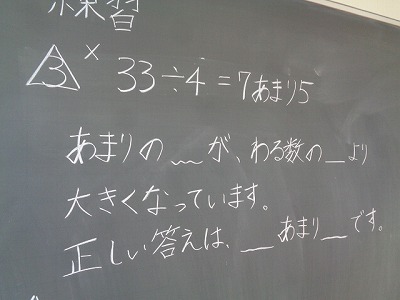 練習
3 × 33÷4=7あまり5
あまりの__が、わる数の__より
大きくなっています。
正しい答えは、__あまり__です。